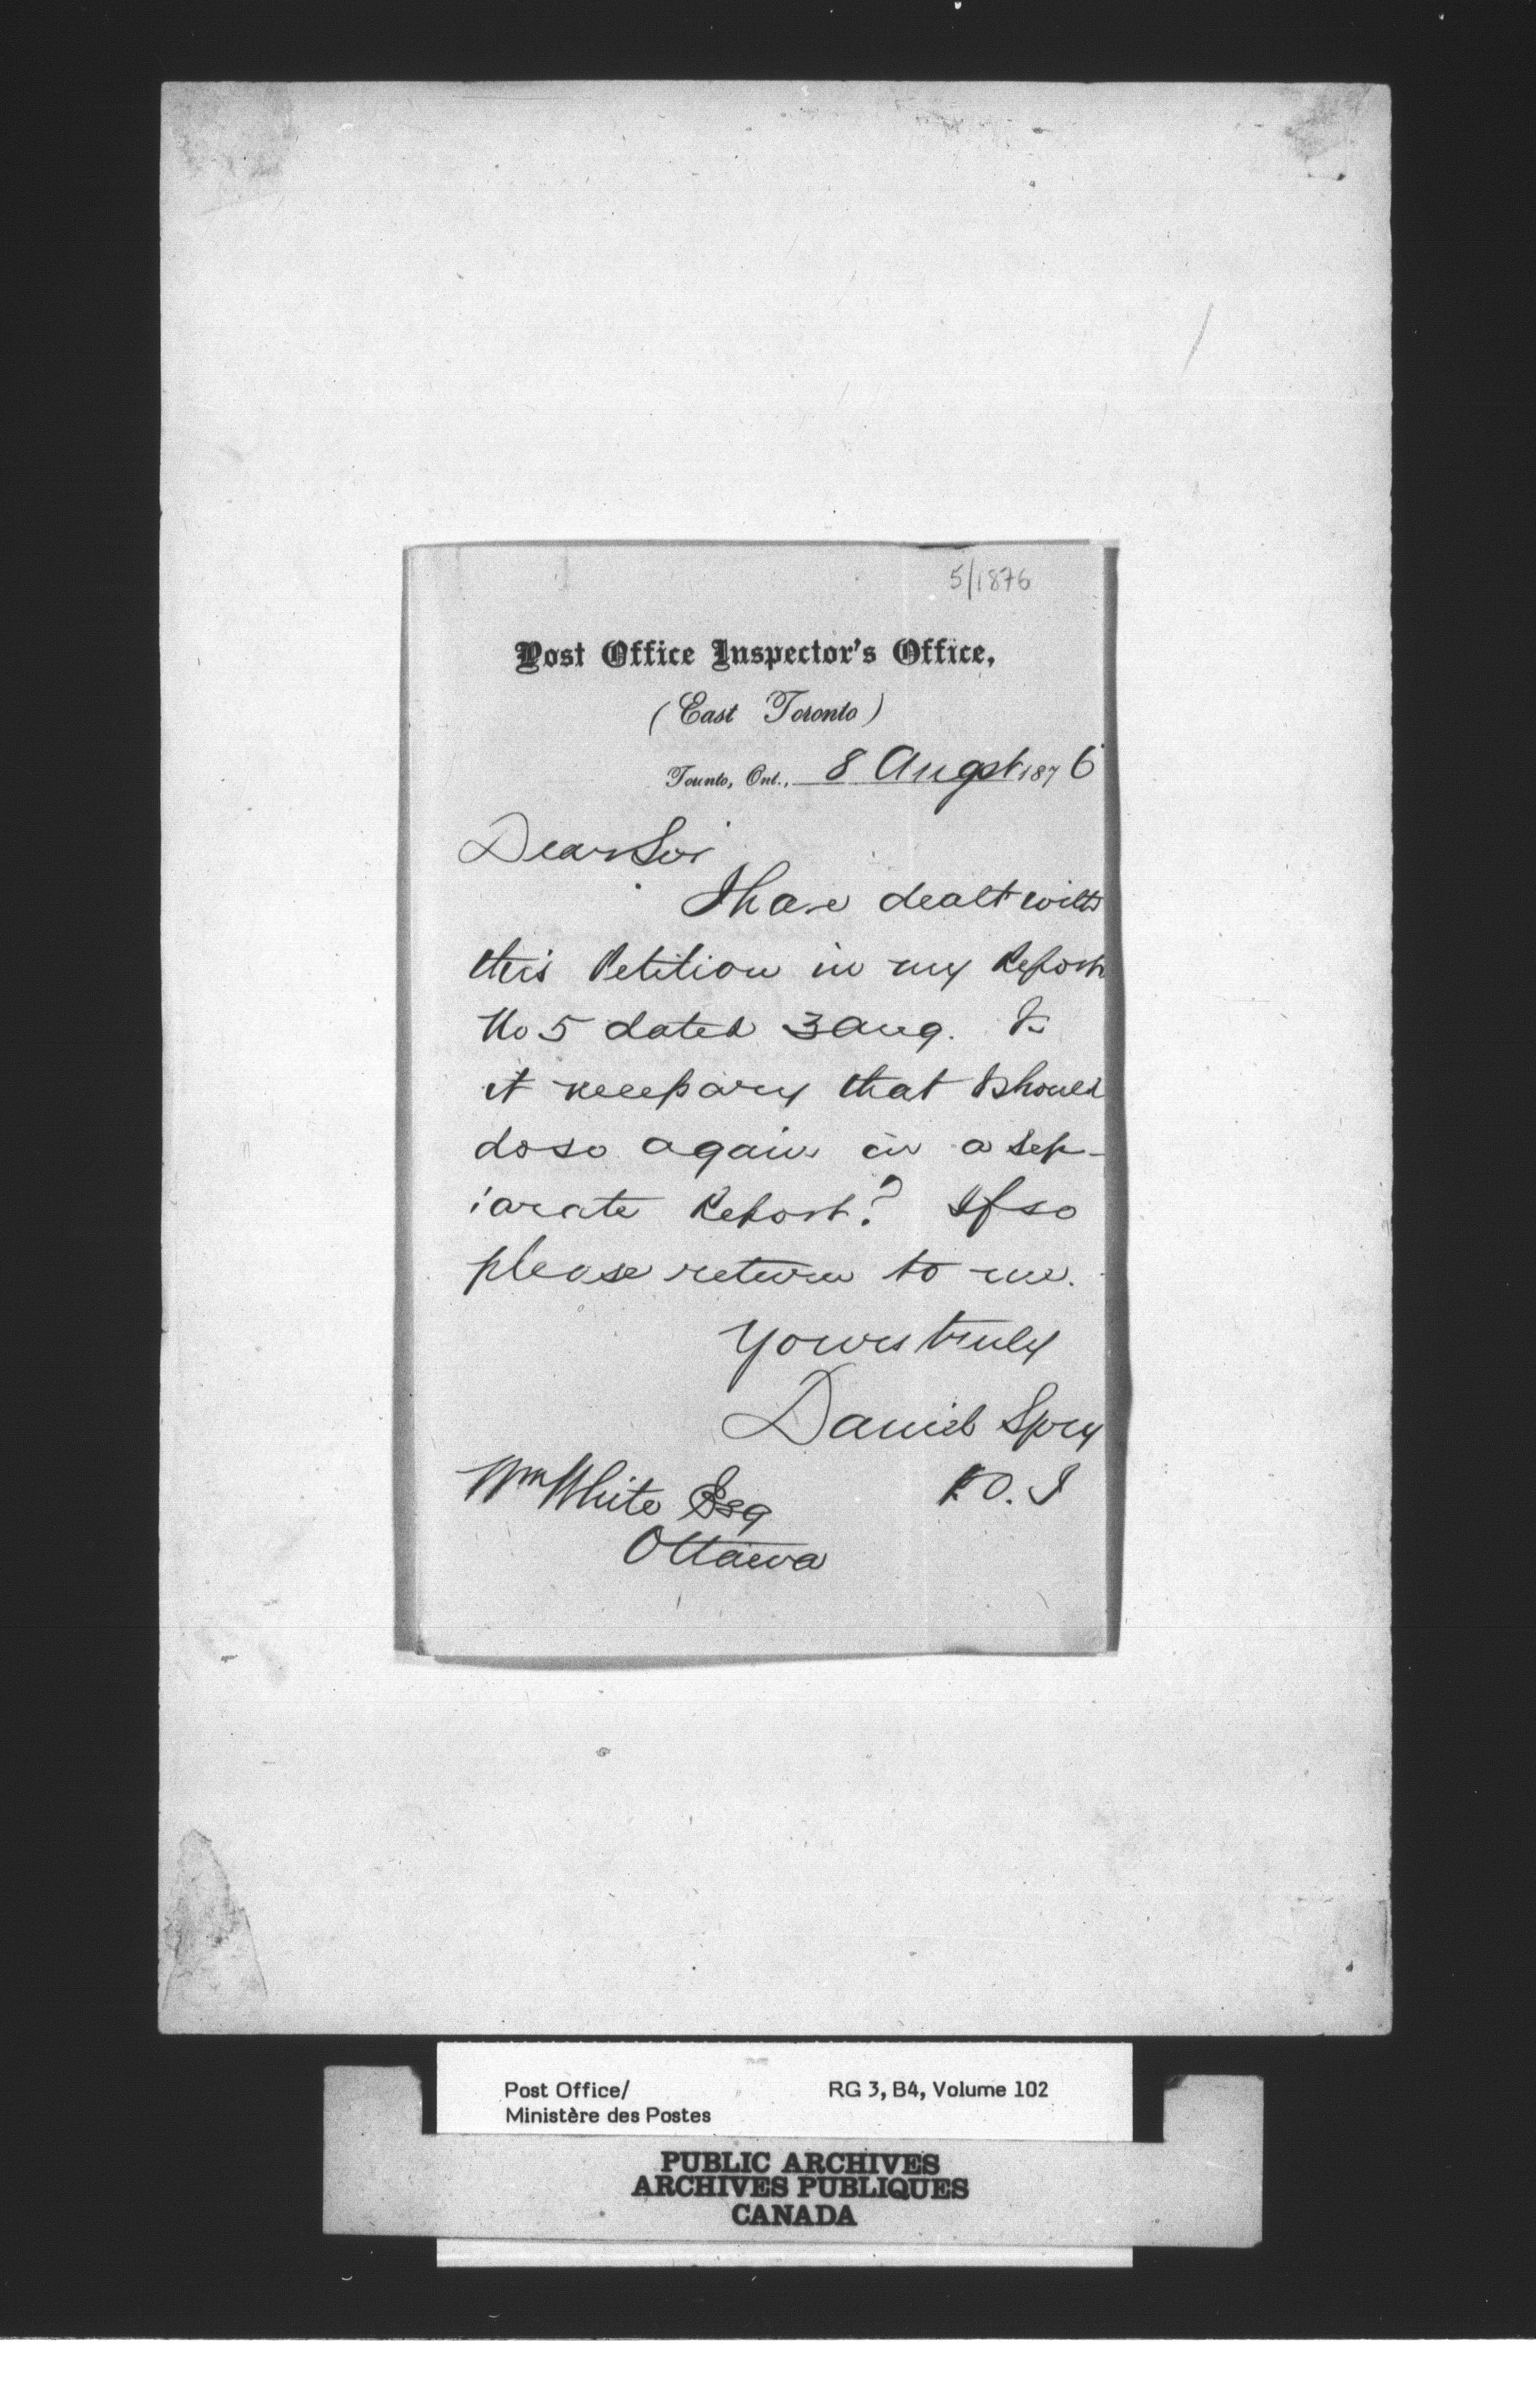 5/1876
Post Office Inspector's Office,
(East Toronto)
Toronto, Ont., 8 Augst 1876
Dear Sir
I have dealt with
this Petition in my Report
No 5 dated 3 Aug. Is
it necessary that I should
do so again in a sep-
arate Report? If so
please return to me.
Yours truly
Daniel Spry
P.O.I
Wm White Esq
Ottawa
Post Office/ RG 3, B4, Volume 102
Ministère des Postes
PUBLIC ARCHIVES
ARCHIVES PUBLIQUES
CANADA